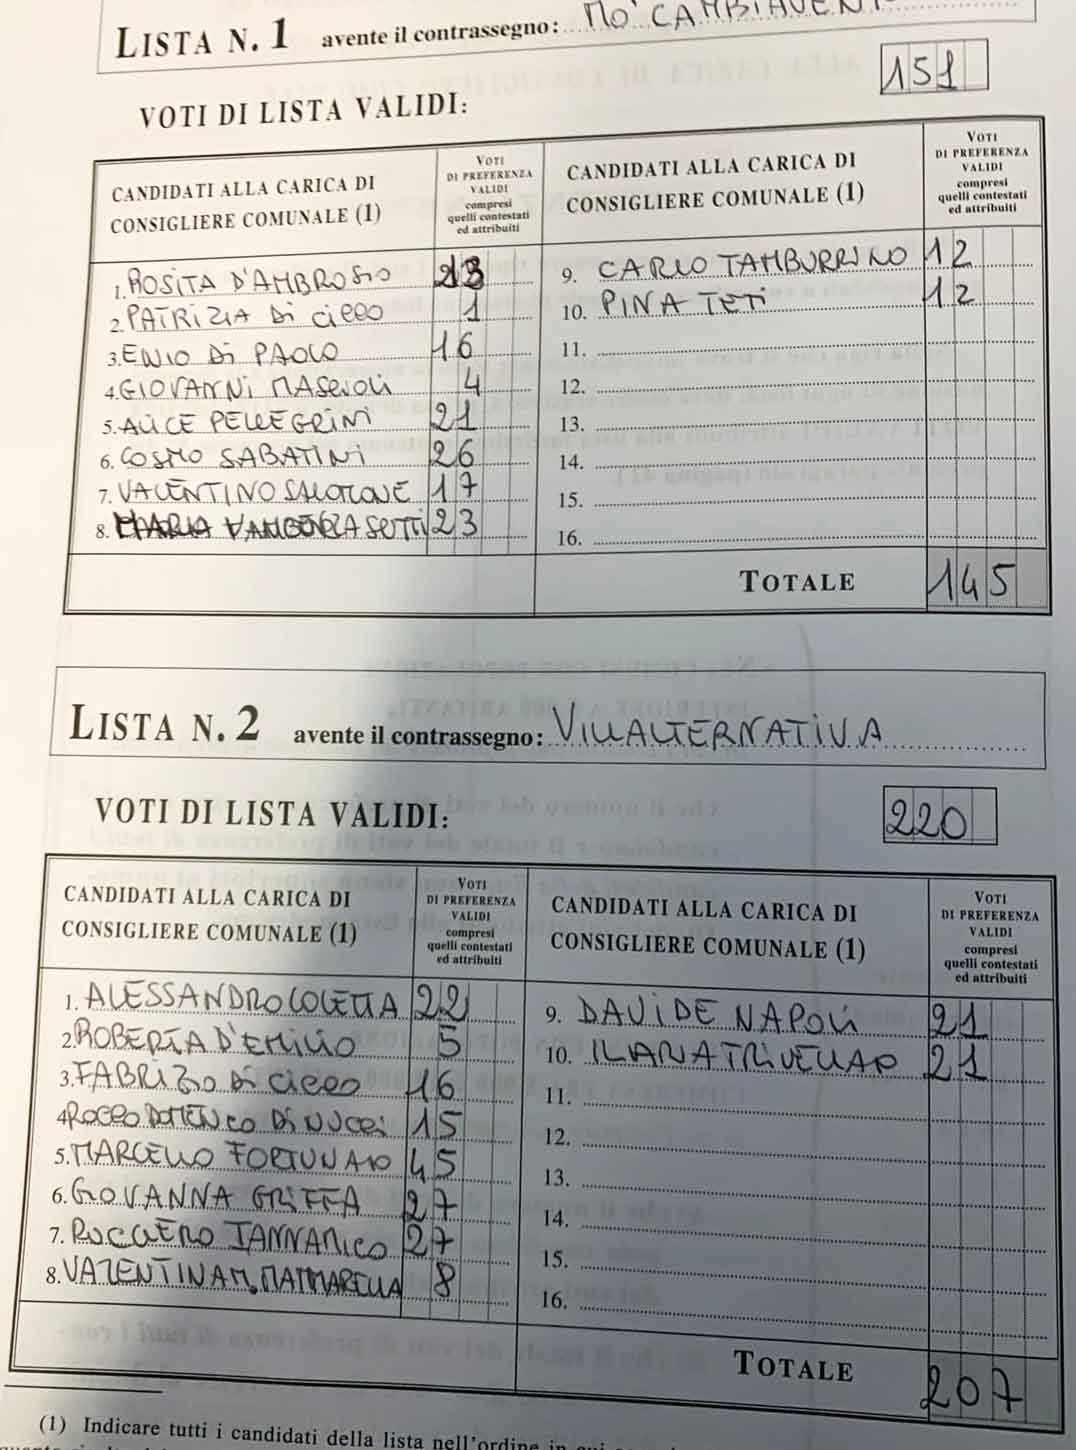 LISTA N. 1 avente il contrassegno: MO' CAMBIAVENT
VOTI DI LISTA VALIDI: 151
CANDIDATI ALLA CARICA DI CONSIGLIERE COMUNALE (1)
VOTI DI PREFERENZA VALIDI compresi quelli contestati ed attribuiti
CANDIDATI ALLA CARICA DI CONSIGLIERE COMUNALE (1)
VOTI DI PREFERENZA VALIDI compresi quelli contestati ed attribuiti
1. ROSITA D'AMBROSIO 13
2. PATRIZIA Di CiCCO 1
3. ENIO Di PAOLO 16
4. GIOVANNi MASCiOLi 4
5. ALICE PELLEGRINI 21
6. COSMO SABATINI 26
7. VALENTINO SALOTONE 17
8. SETTI 23
9. CARLO TAMBURRINO 12
10. PINA TETi 12
11.
12.
13.
14.
15.
16.
TOTALE 145
LISTA N. 2 avente il contrassegno: VILLALTERNATiVA
VOTI DI LISTA VALIDI: 220
CANDIDATI ALLA CARICA DI CONSIGLIERE COMUNALE (1)
VOTI DI PREFERENZA VALIDI compresi quelli contestati ed attribuiti
CANDIDATI ALLA CARICA DI CONSIGLIERE COMUNALE (1)
VOTI DI PREFERENZA VALIDI compresi quelli contestati ed attribuiti
1. ALESSANDRO COLETTA 22
2. ROBERTA D'EMiLiO 5
3. FABRIZIO Di CiCCO 16
4. ROCCO DOMENICO Di NUCCi 15
5. MARCELLO FORTUNATO 45
6. GIOVANNA GRIFFA 27
7. RUGGERO IANNARICO 27
8. VALENTINA M. MATTARELLA 8
9. DAVIDE NAPOLi 21
10. ILARIA TRIVELLATO 21
11.
12.
13.
14.
15.
16.
TOTALE 207
(1) Indicare tutti i candidati della lista nell'ordine in cui